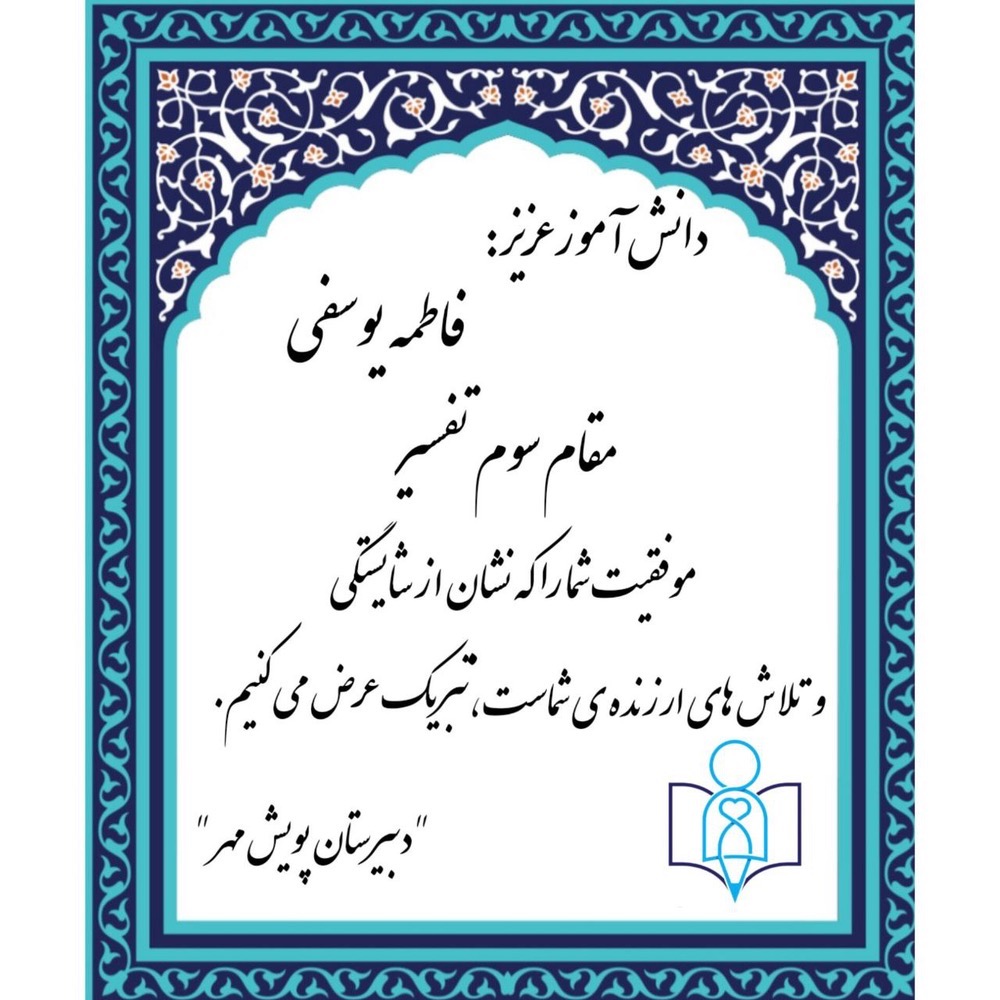 دانش آموز عزیز:
فاطمه یوسفی
مقام سوم تفسیر
موفقیت شما را که نشان از شایستگی
و تلاش های ارزنده ی شماست، تبریک عرض می کنیم.
"دبیرستان پویش مهر"